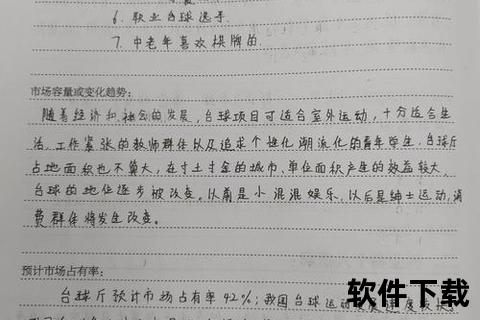 6. 职业台球选手
7. 中老年喜欢棋牌的.
市场容量或变化趋势:
随着经济和社会的发展,台球项目可适合室外运动,十分适合生
活、工作紧张的教师群体以及追求个性化潮流化的青年学生.台球厅
占地面积也不算大,在寸土寸金的城市,单位面积产生的效益较大.
台球的地位逐步被改变。从前是小混混娱乐,以后是绅士运动,消
费群体将发生改变。
预计市场占有率:
台球厅预计市场占有率42%;我国台球运动
软件下载